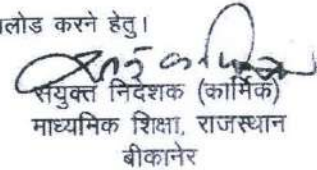 लोड करने हेतु।
संयुक्त निदेशक (कार्मिक)
माध्यमिक शिक्षा, राजस्थान
बीकानेर